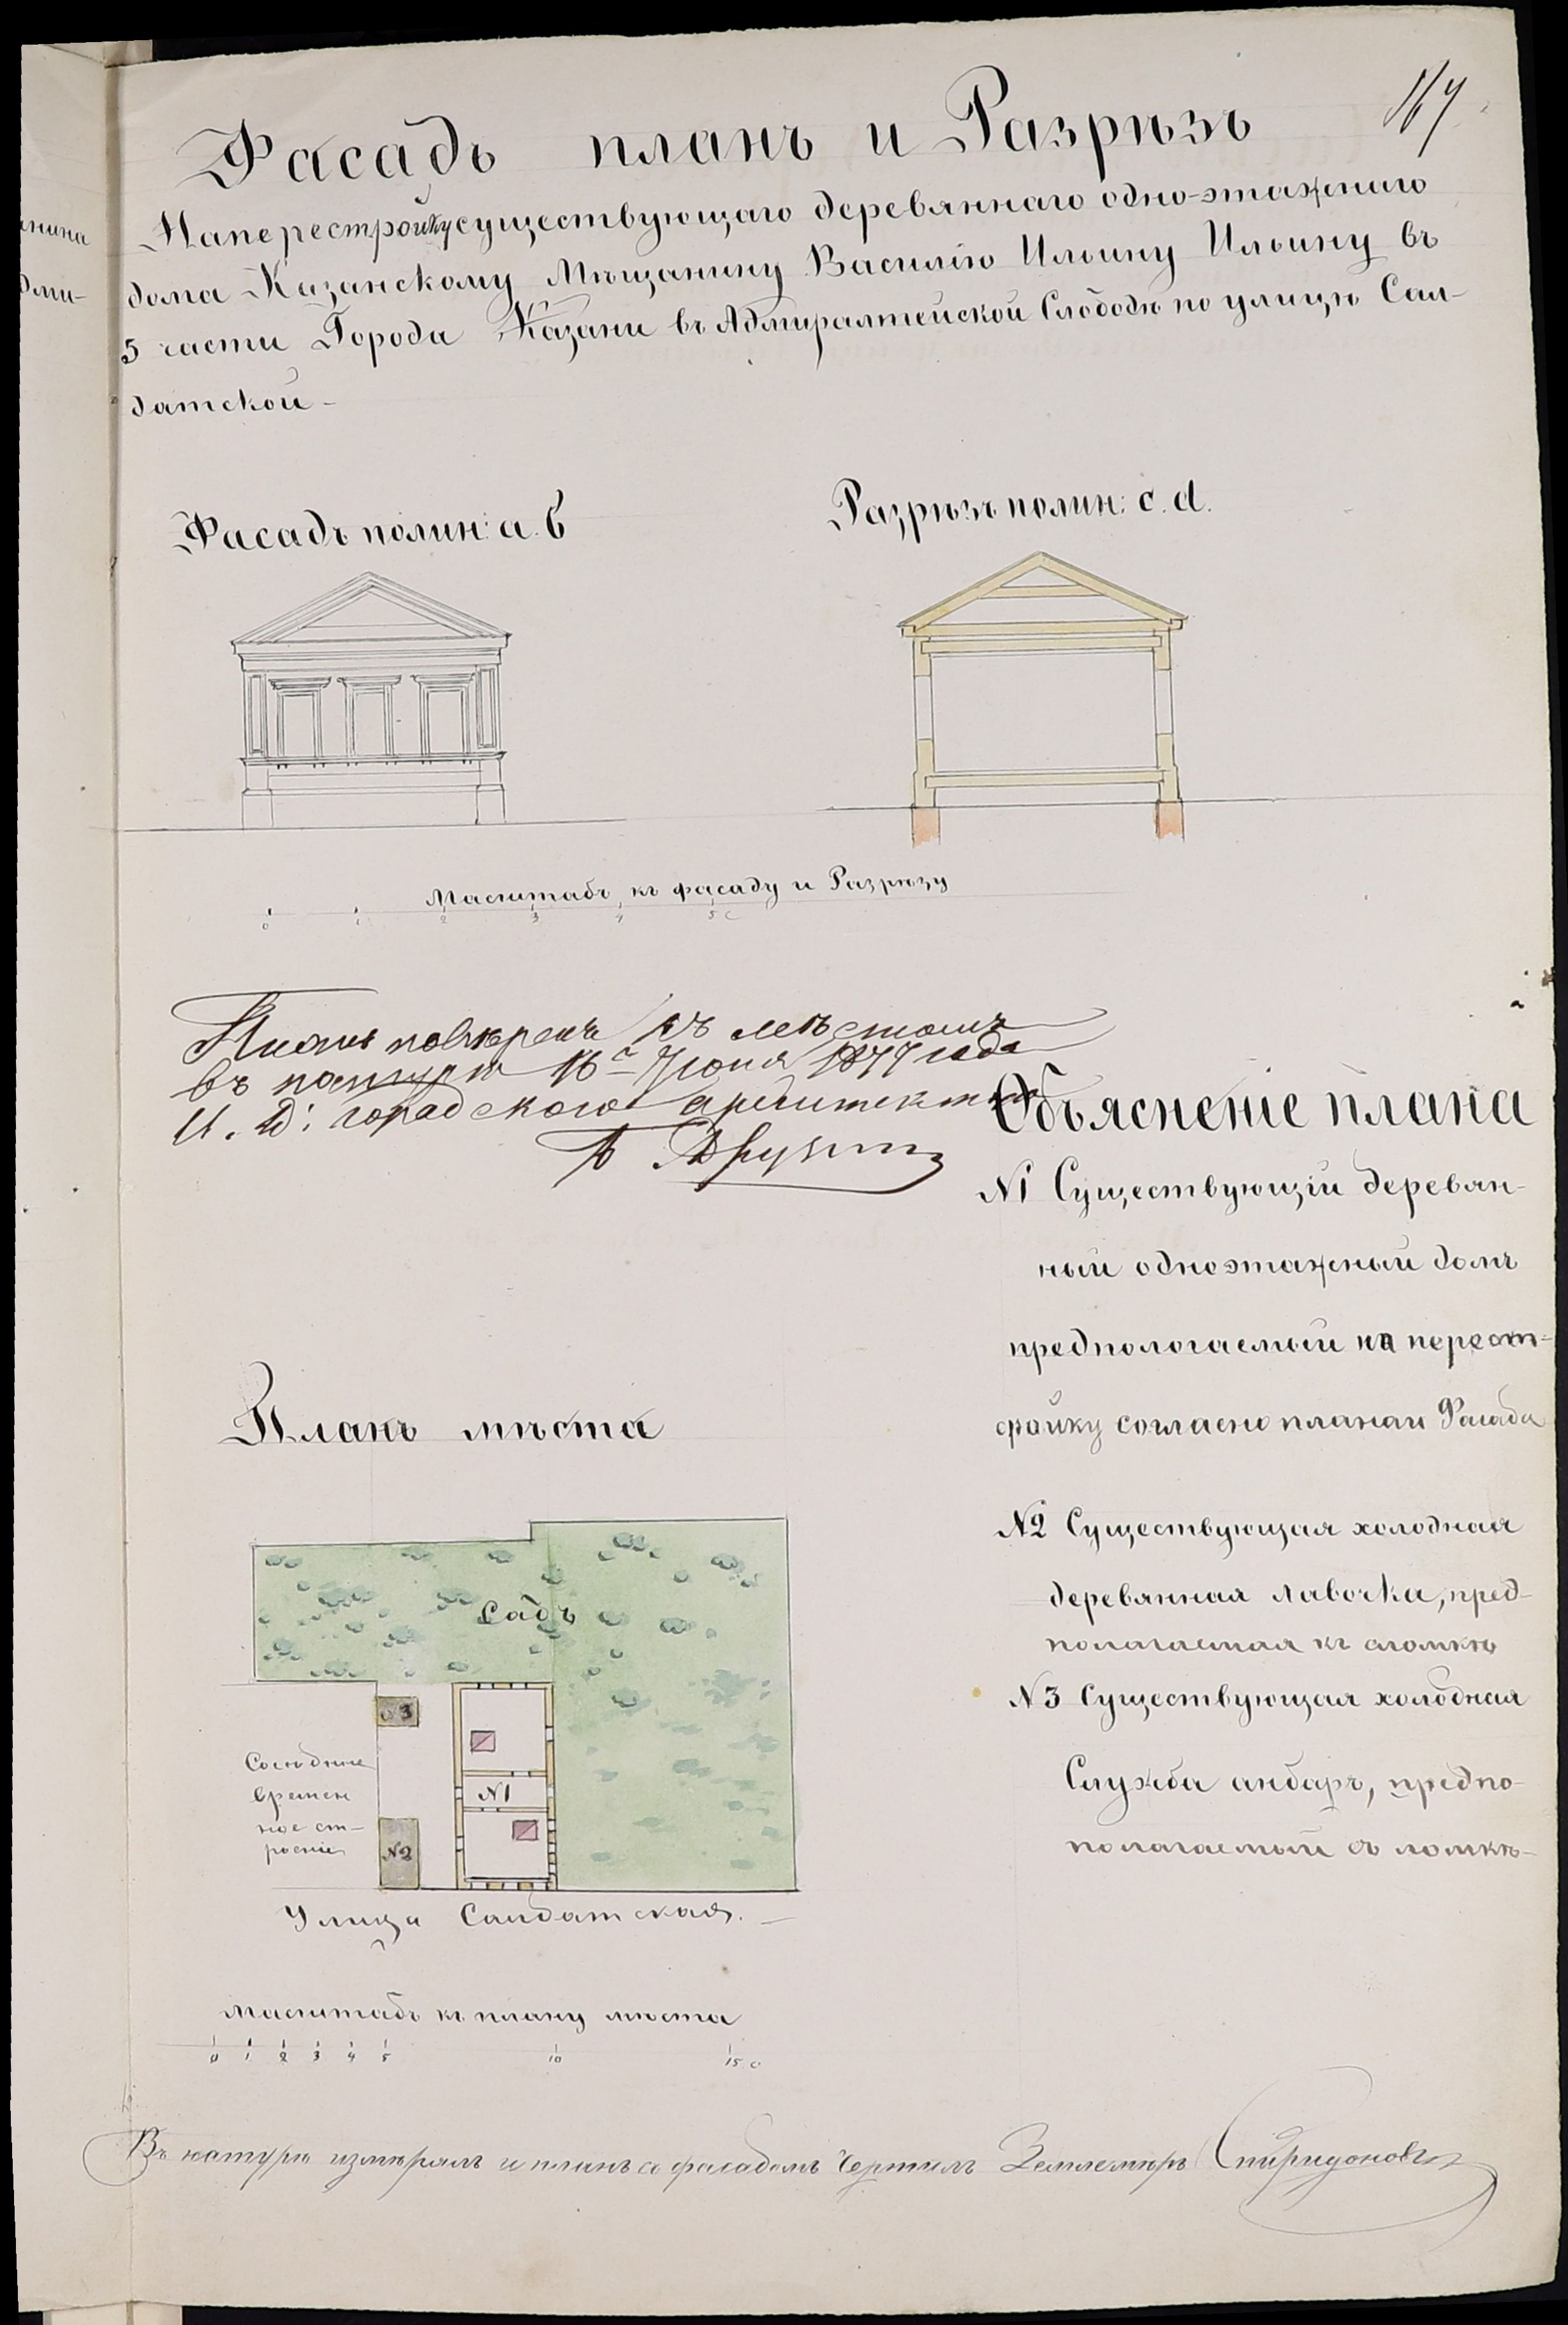 167
Фасадъ планъ и Разрѣзъ
На перестройку существующаго деревяннаго одно-этажнаго
дома Казанскому Мѣщанину Василію Ильину Ильину въ
5 части Города Казани въ Адмиралтейской Слободѣ по улицѣ Сал-
датской-
нина
дми-
Фасадъ по лин: а. б
Разрѣзъ по лин: c. d.
Масштабъ къ фасаду и Разрѣзу
0 1 2 3 4 5 С
Планъ повѣренъ съ мѣстомъ
въ натурѣ 16го Июня 1877 года
И. Д: городскаго архитектора
Объясненіе плана
N1 Существующій деревян-
ный одноэтажный домъ
предпологаемый на перест-
ройку согласно плана и Фасада
N2 Существующая холодная
деревянная лавочка, пред-
полагаемая къ сломкѣ
N3 Существующая холодная
Служба анбаръ, предпо-
полагаемый къ ломкѣ-
Планъ мѣста
Садъ
N3
N1
N2
Сосѣдние
времен
ное ст-
роение
Улица Салдатская.
масштабъ къ плану мѣста
0 1 2 3 4 5 10 15 с
Въ натурѣ измѣрялъ и планъ съ фасадомъ Чертилъ Землемѣръ Спиридоновъ